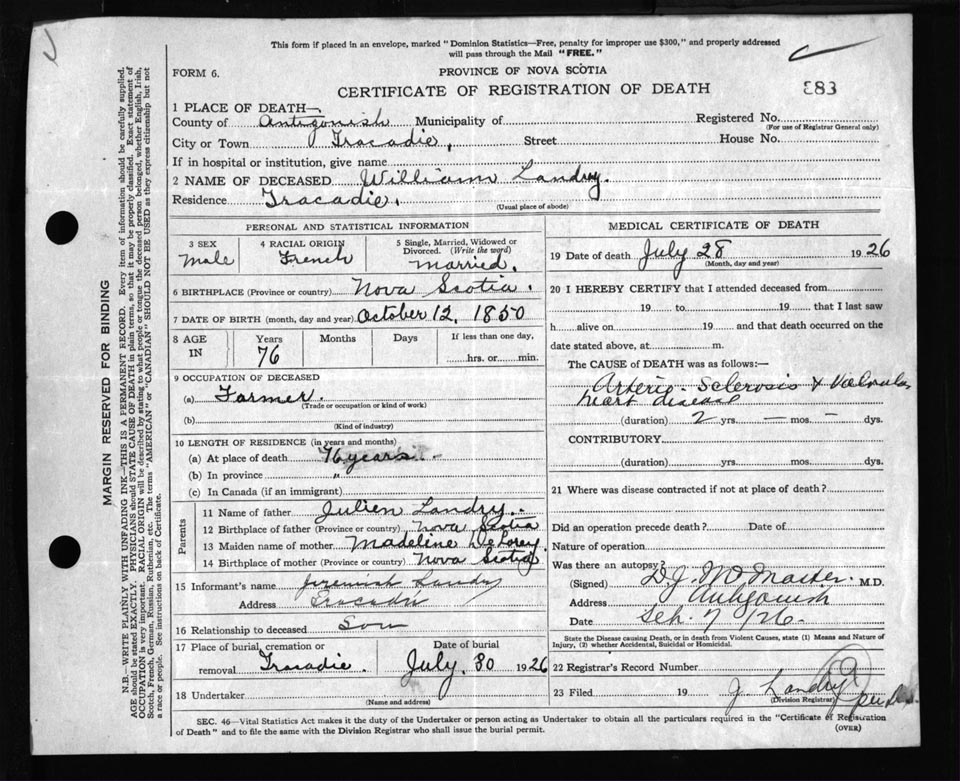 This form if placed in an envelope, marked "Dominion Statistics—Free, penalty for improper use $300," and properly addressed
will pass through the Mail "FREE."
FORM 6.
PROVINCE OF NOVA SCOTIA
CERTIFICATE OF REGISTRATION OF DEATH
883
MARGIN RESERVED FOR BINDING
N.B.—WRITE PLAINLY WITH UNFADING INK—THIS IS A PERMANENT RECORD. Every item of information should be carefully supplied.
AGE should be stated EXACTLY. PHYSICIANS should STATE CAUSE OF DEATH in plain terms, so that it may be properly classified. Exact statement of
OCCUPATION is very important. RACIAL ORIGIN will be described by stating to what people or tongue the deceased person belonged, whether English, Irish,
Scotch, French, German, Russian, Ruthenian, etc. The terms "AMERICAN" or "CANADIAN" SHOULD NOT BE USED as they express citizenship but not
a race or people. See instructions on back of Certificate.
1 PLACE OF DEATH—
County of Antigonish Municipality of Registered No.
(For use of Registrar General only)
City or Town Tracadie, Street House No.
If in hospital or institution, give name
2 NAME OF DECEASED William Landry.
Residence Tracadie.
(Usual place of abode)
PERSONAL AND STATISTICAL INFORMATION
3 SEX 4 RACIAL ORIGIN 5 Single, Married, Widowed or
Divorced. (Write the word)
Male French married.
6 BIRTHPLACE (Province or country) Nova Scotia.
7 DATE OF BIRTH (month, day and year) October 12, 1850
8 AGE IN Years Months Days If less than one day,
76 hrs. or min.
9 OCCUPATION OF DECEASED
(a) Farmer.
(Trade or occupation or kind of work)
(b)
(Kind of industry)
10 LENGTH OF RESIDENCE (in years and months)
(a) At place of death 76 years
(b) In province "
(c) In Canada (if an immigrant)
Parents
11 Name of father Julien Landry.
12 Birthplace of father (Province or country) Nova Scotia
13 Maiden name of mother Madeline DeLorey.
14 Birthplace of mother (Province or country) Nova Scotia
15 Informant's name Jeremiah Landry
Address Tracadie
16 Relationship to deceased Son
17 Place of burial, cremation or Date of burial
removal Tracadie. July, 30 1926
18 Undertaker
(Name and address)
MEDICAL CERTIFICATE OF DEATH
19 Date of death July 28 1926
(Month, day and year)
20 I HEREBY CERTIFY that I attended deceased from
19 to 19 that I last saw
h alive on 19 and that death occurred on the
date stated above, at m.
The CAUSE OF DEATH was as follows:—
Arterio-Sclerosis & Valvular
heart disease
(duration) 2 yrs. — mos. — dys.
CONTRIBUTORY
(duration) yrs. mos. dys.
21 Where was disease contracted if not at place of death?
Did an operation precede death? Date of
Nature of operation
Was there an autopsy?
(Signed) M.D.
Address Antigonish
Date Sep. 7/26.
State the Disease causing Death, or in death from Violent Causes, state (1) Means and Nature of
Injury, (2) whether Accidental, Suicidal or Homicidal.
22 Registrar's Record Number
23 Filed 19 J. Landry
(Division Registrar)
SEC. 46—Vital Statistics Act makes it the duty of the Undertaker or person acting as Undertaker to obtain all the particulars required in the "Certificate of Registration
of Death" and to file the same with the Division Registrar who shall issue the burial permit.
(OVER)